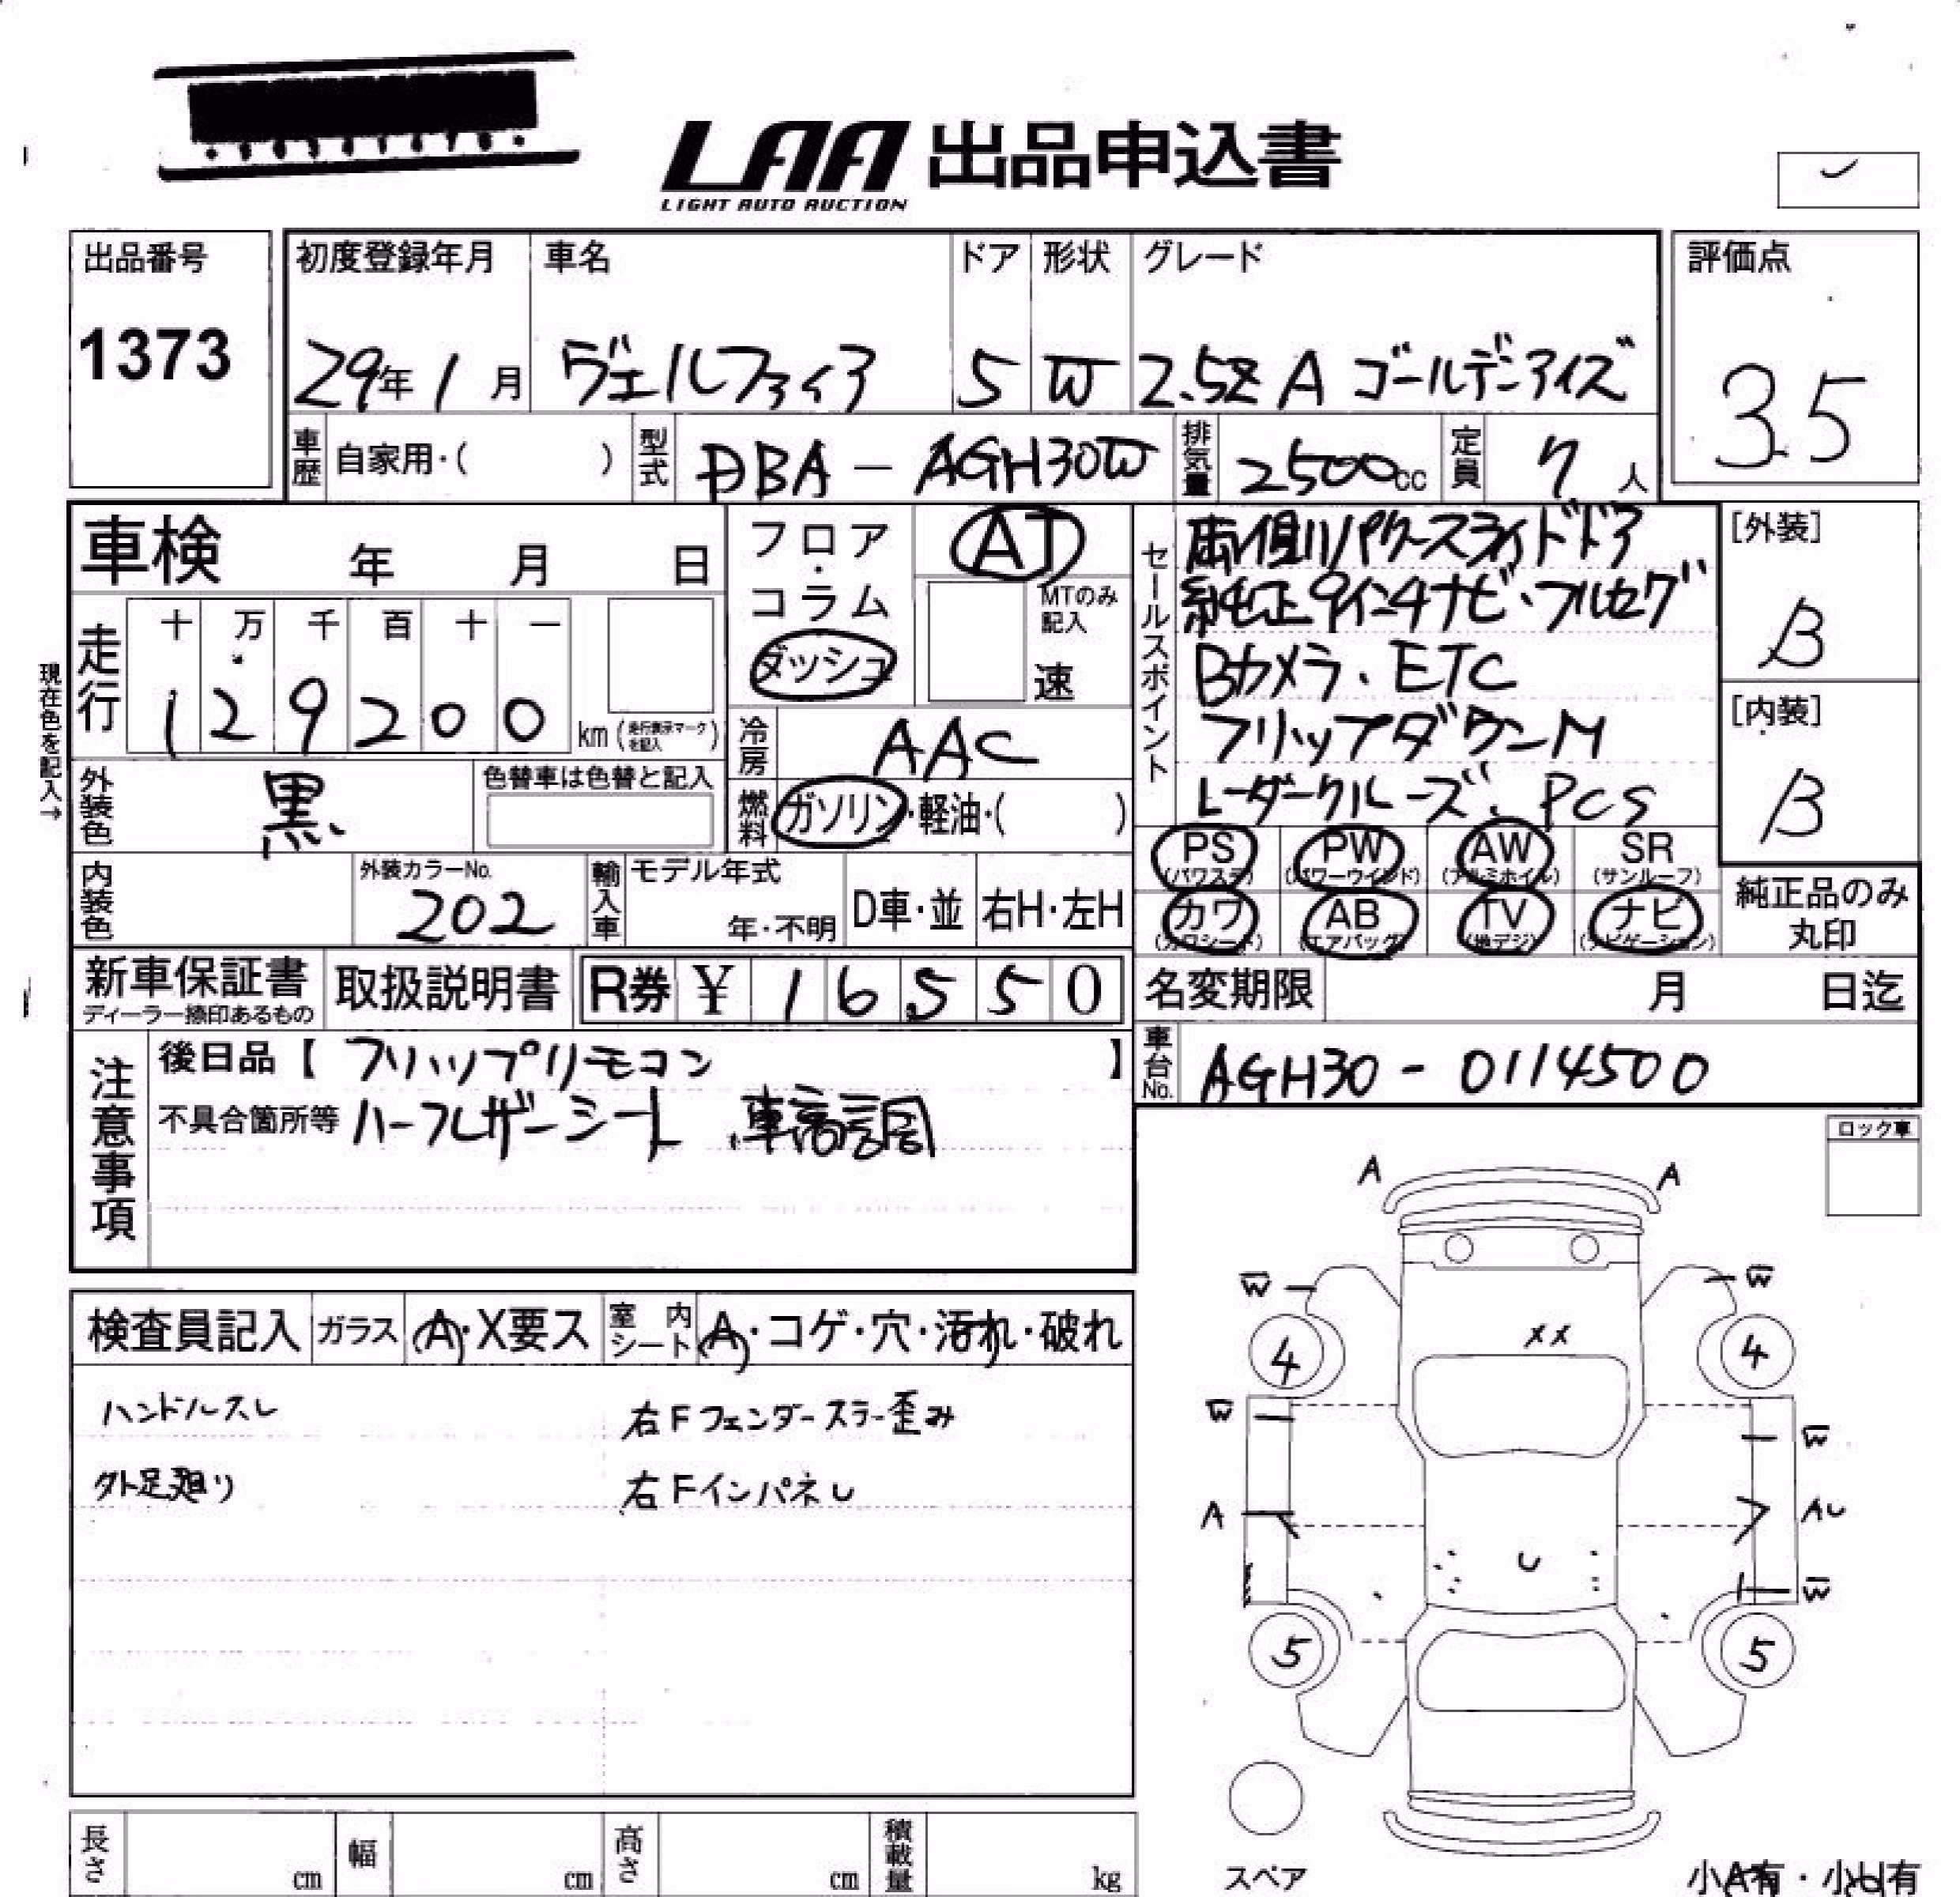 LAA 出品申込書
LIGHT AUTO AUCTION
出品番号
1373
初度登録年月 車名 ドア 形状 グレード
29年1月 ヴェルファイア 5 W 2.5Z A ゴールデンアイズ
評価点
3.5
車歴 自家用・( ) 型式 DBA-AGH30W 排気量 2500cc 定員 7人
車検 年 月 日
フロア・コラム ダッシュ
AT
MTのみ記入
速
セールスポイント
両側パワースライドドア
純正9インチナビ・フルセグ
Bカメラ、ETC
フリップダウンM
レーダークルーズ、PCS
[外装]
B
[内装]
B
現在色を記入→
走行 十 万 千 百 十 一
1 2 9 2 0 0 km (走行表示マークを記入)
冷房 AAC
外装色 黒
色替車は色替と記入
燃料 ガソリン・軽油・( )
PS (パワステ) PW (パワーウインド) AW (アルミホイル) SR (サンルーフ)
カワ (カワシート) AB (エアバッグ) TV (地デジ) ナビ (ナビゲーション)
純正品のみ丸印
内装色 外装カラーNo. 202
輸入車 モデル年式 年・不明 D車・並 右H・左H
新車保証書 ディーラー捺印あるもの 取扱説明書 R券 ¥ 1 6 5 5 0
名変期限 月 日迄
車台No. AGH30-0114500
注意事項
後日品【 フリップリモコン 】
不具合箇所等 ハーフレザーシート 車高調
ロック車
検査員記入 ガラス A・X要ス 室内シート A・コゲ・穴・汚れ・破れ
ハンドルスレ 右Fフェンダーステー歪み
外足廻り 右FインパネU
A A
W W
XX
4 4
W W
A AU
U
W
5 5
スペア
小A有・小U有
長さ cm 幅 cm 高さ cm 積載量 kg